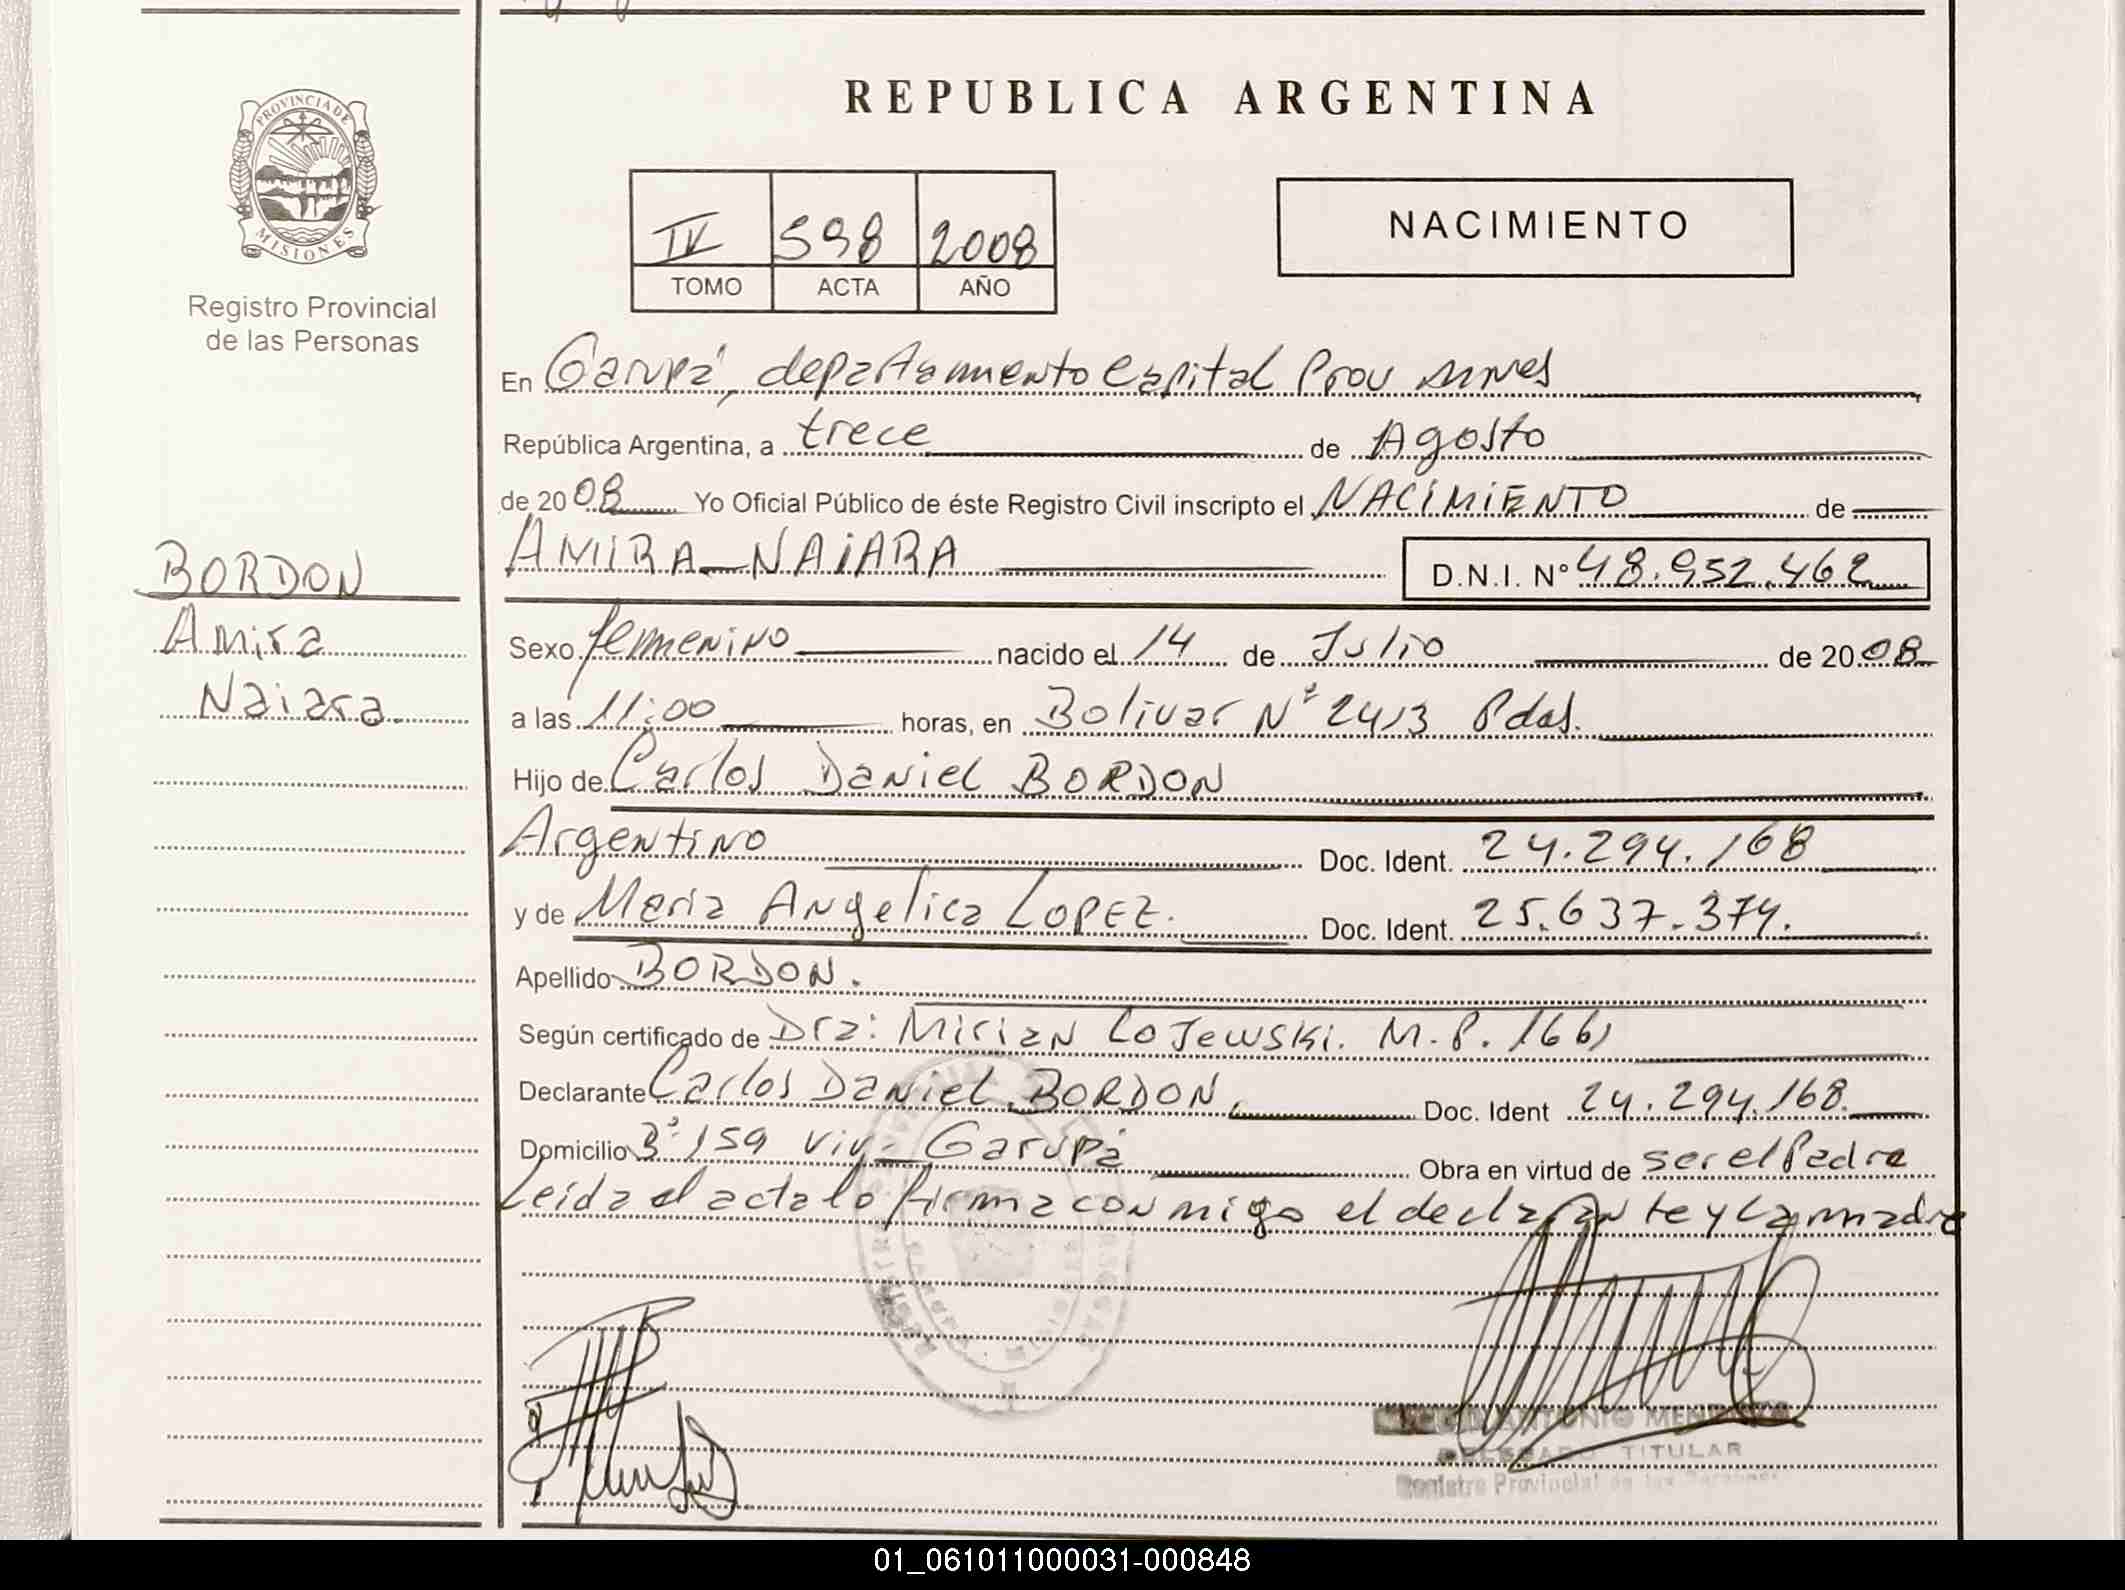 REPUBLICA ARGENTINA
PROVINCIA DE MISIONES
Registro Provincial
de las Personas
IV 598 2008
TOMO ACTA AÑO
NACIMIENTO
En Garupá, departamento Capital Prov Mnes
República Argentina, a trece de Agosto
de 2008 Yo Oficial Público de éste Registro Civil inscripto el NACIMIENTO de
AMIRA NAIARA D.N.I. Nº 48.952.462
BORDON
Amira
Naiara.
Sexo femenino nacido el 14 de Julio de 2008
a las 11:00 horas, en Bolivar Nº 2413 Pdas.
Hijo de Carlos Daniel BORDON
Argentino Doc. Ident. 24.294.168
y de Maria Angelica LOPEZ. Doc. Ident. 25.637.374.
Apellido BORDON.
Según certificado de Dra: Mirian Lojewski. M.P. 1661
Declarante Carlos Daniel BORDON. Doc. Ident 24.294.168.
Domicilio 159 viv. Garupá Obra en virtud de ser el Padre
Leida el acta lo firma conmigo el declarante y la madre
ANTONIO
DELEGADO TITULAR
Registro Provincial de las Personas
01_061011000031-000848